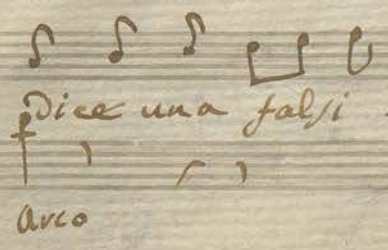 Dice una falsi
Arco